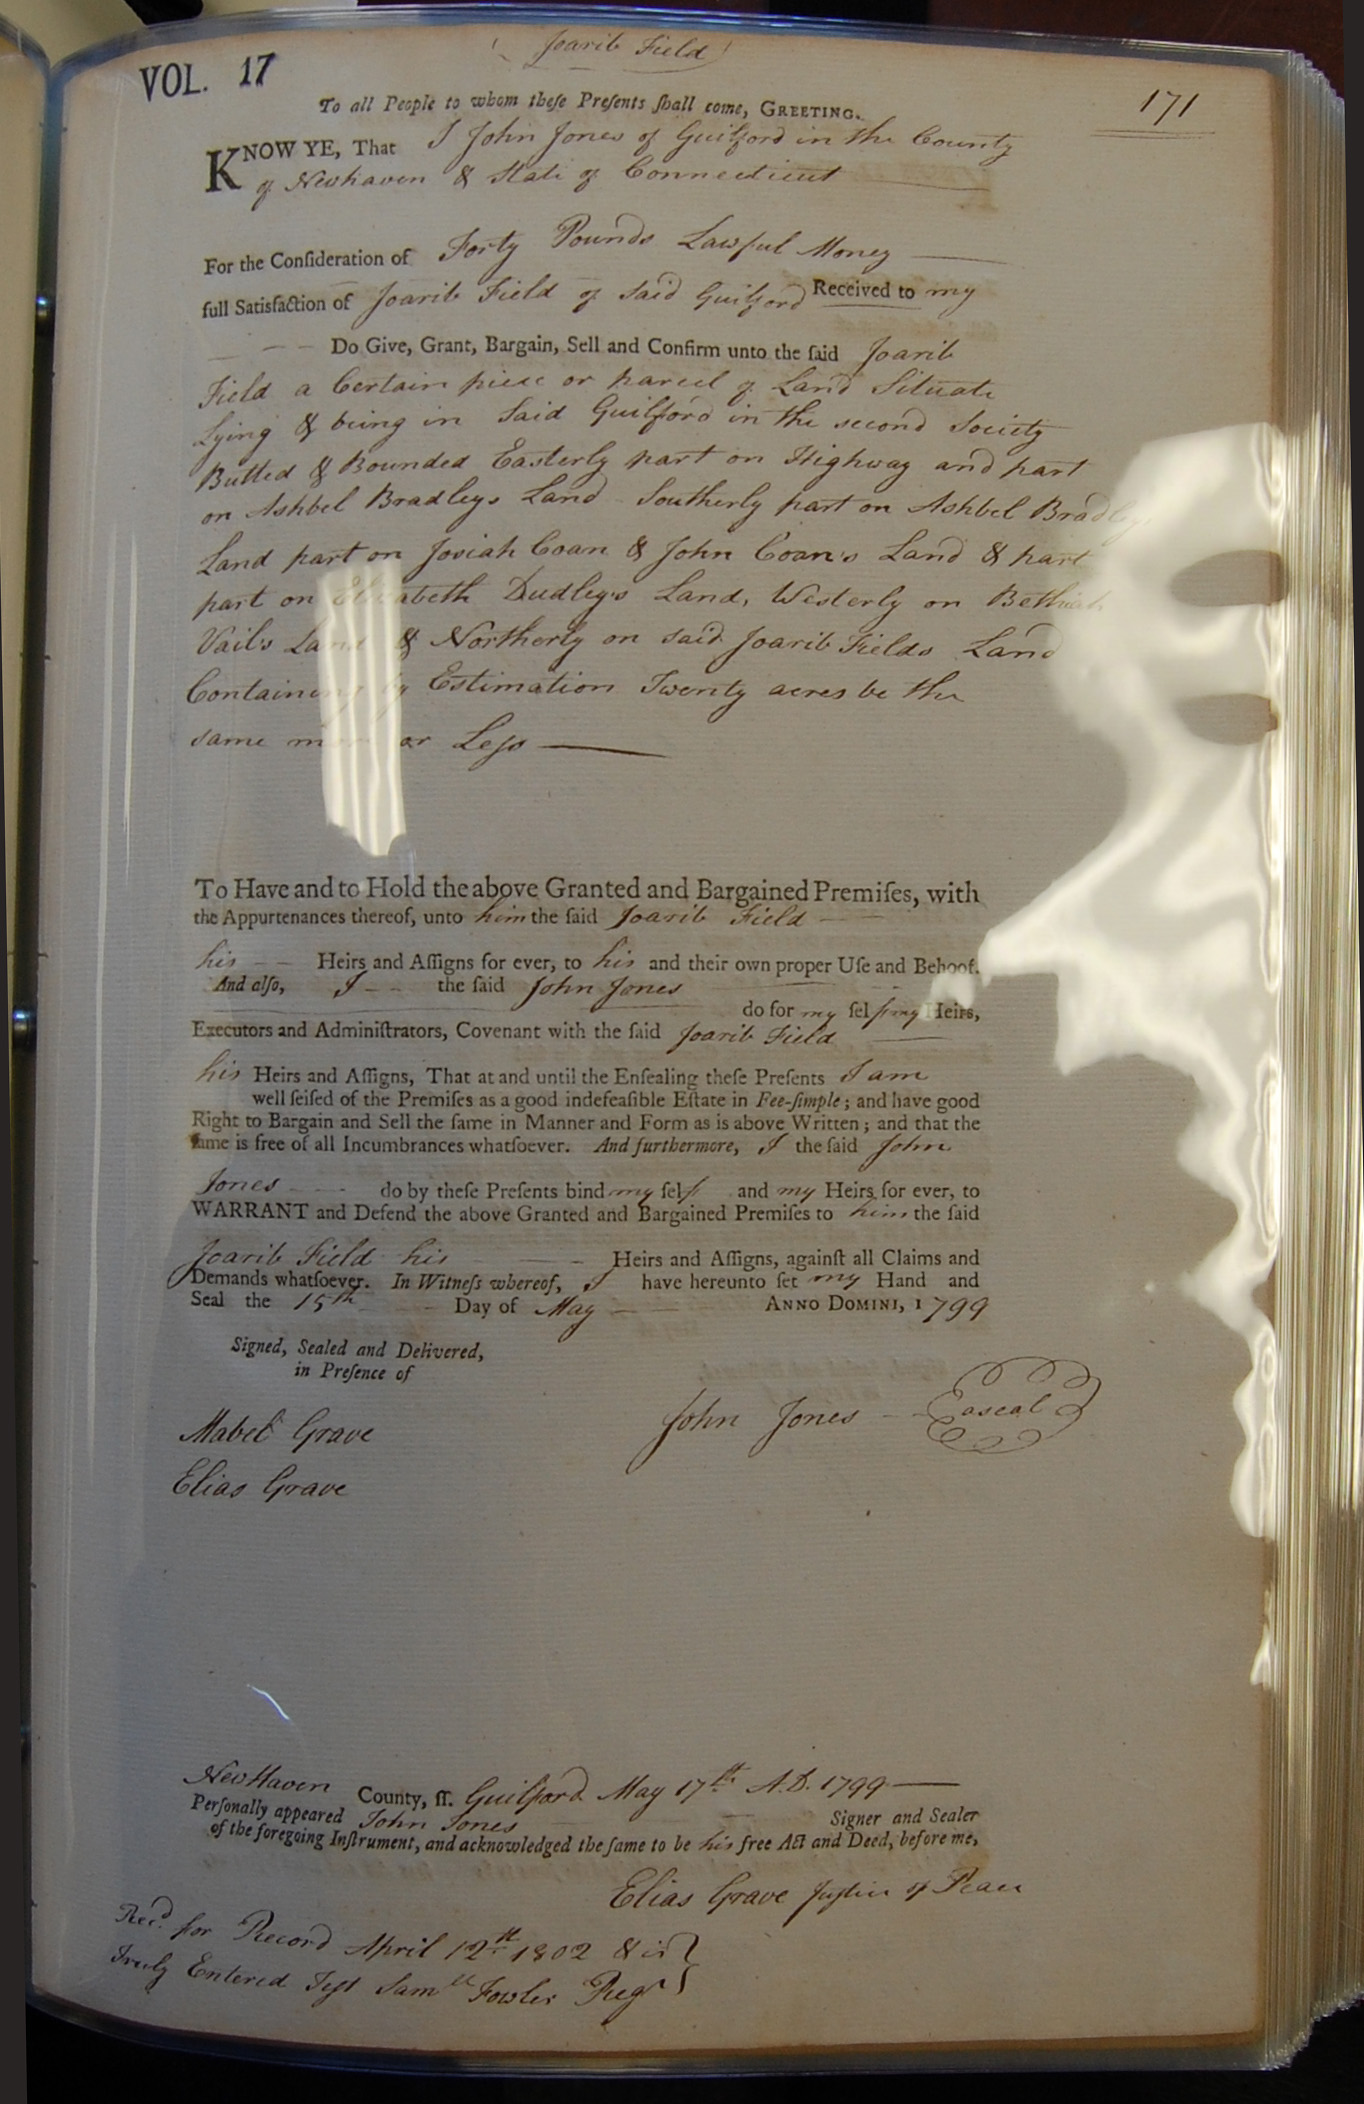 Joarib Field
VOL. 17
171
To all People to whom theſe Preſents ſhall come, GREETING.
KNOW YE, That I John Jones of Guilford in the County
of Newhaven & State of Connecticut
For the Conſideration of Forty Pounds Lawful Money
full Satisfaction of Joarib Field of said Guilford Received to my
Do Give, Grant, Bargain, Sell and Confirm unto the ſaid Joarib
Field a Certain piece or parcel of Land Situate
Lying & being in Said Guilford in the second Society
Butted & Bounded Easterly part on Highway and part
on Ashbel Bradleys Land Southerly part on Ashbel Bradleys
Land part on Josiah Coan & John Coan's Land & part
part on Elizabeth Dudley's Land, Westerly on Bethiah
Vail's Land & Northerly on said Joarib Fields Land
Containing by Estimation Twenty acres be the
same more or Less
To Have and to Hold the above Granted and Bargained Premiſes, with
the Appurtenances thereof, unto him the ſaid Joarib Field
his Heirs and Aſſigns for ever, to his and their own proper Uſe and Behoof.
And alſo, I the ſaid John Jones
do for my ſelf my Heirs,
Executors and Adminiſtrators, Covenant with the ſaid Joarib Field
his Heirs and Aſſigns, That at and until the Enſealing theſe Preſents I am
well ſeiſed of the Premiſes as a good indefeaſible Eſtate in Fee-ſimple; and have good
Right to Bargain and Sell the ſame in Manner and Form as is above Written; and that the
ſame is free of all Incumbrances whatſoever. And furthermore, I the ſaid John
Jones do by theſe Preſents bind my ſelf and my Heirs for ever, to
WARRANT and Defend the above Granted and Bargained Premiſes to him the ſaid
Joarib Field his Heirs and Aſſigns, againſt all Claims and
Demands whatſoever. In Witneſs whereof, I have hereunto ſet my Hand and
Seal the 15th Day of May ANNO DOMINI, 1799
Signed, Sealed and Delivered,
in Preſence of
John Jones Easeal
Mabel Grave
Elias Grave
NewHaven County, ſſ. Guilford May 17th A.D. 1799
Perſonally appeared John Jones Signer and Sealer
of the foregoing Inſtrument, and acknowledged the ſame to be his free Act and Deed, before me,
Elias Grave Justice of Peace
Recd for Record April 12th 1802 & is
Truly Entered Test Samll Fowler Regr